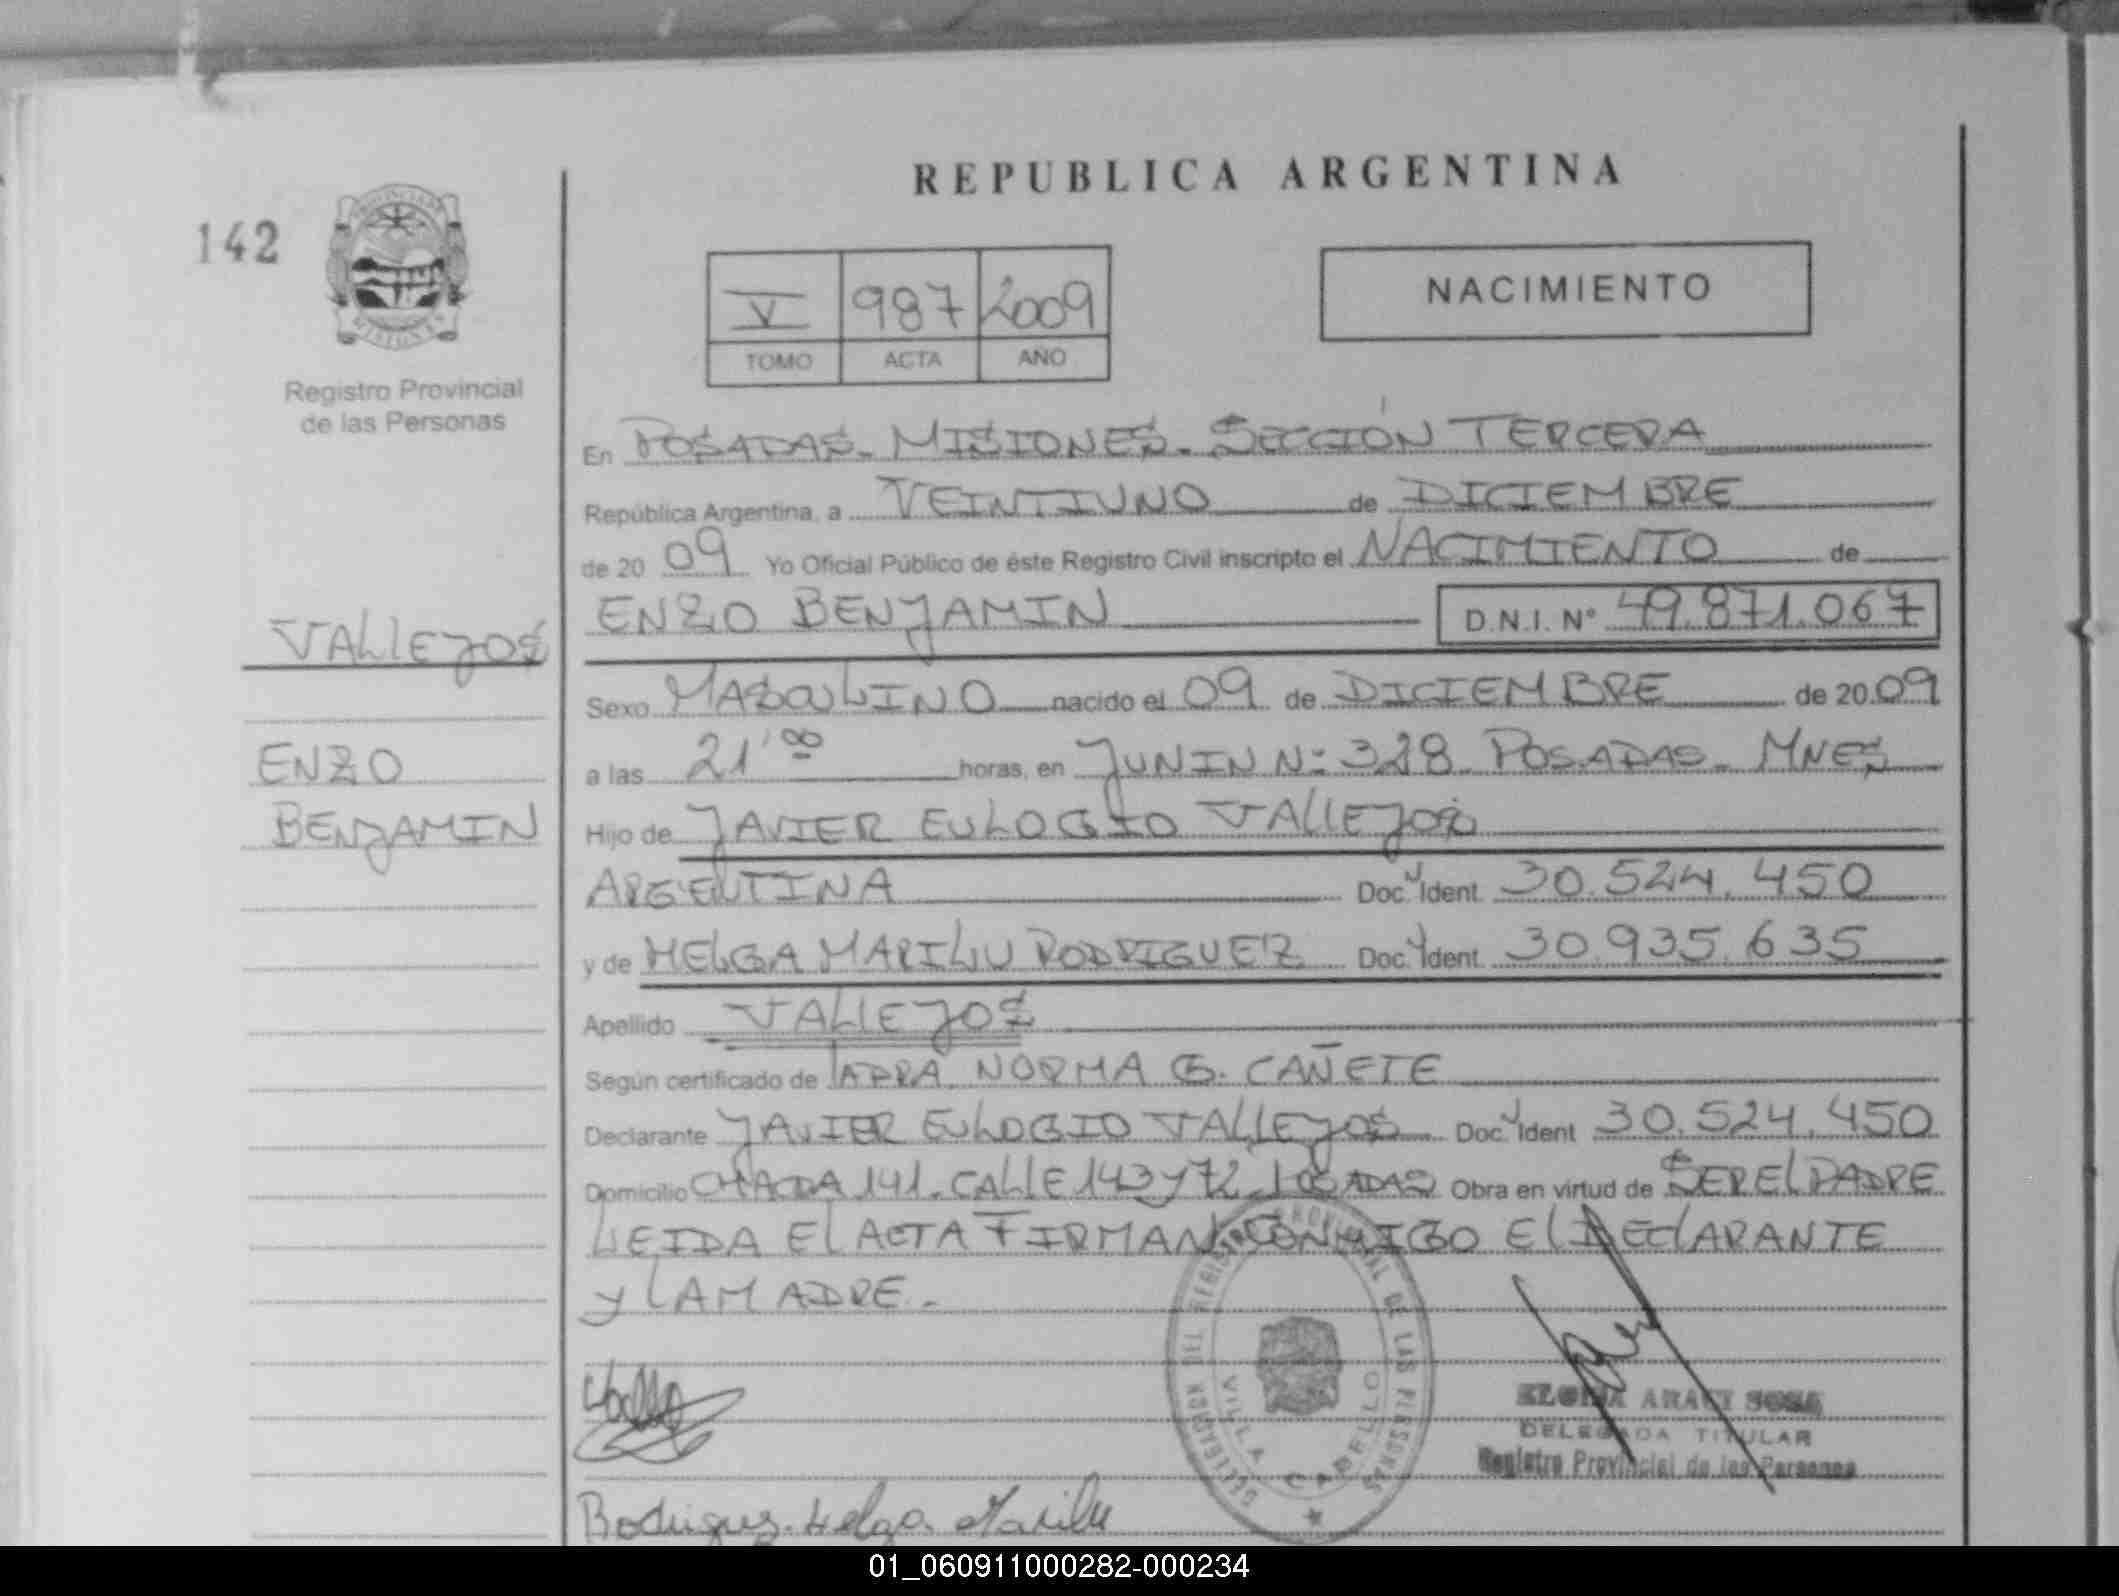 REPUBLICA ARGENTINA
142
PROVINCIA DE
MISIONES
Registro Provincial
de las Personas
V 987 2009
TOMO ACTA AÑO
NACIMIENTO
En POSADAS - MISIONES - SECCION TERCERA
República Argentina, a VEINTIUNO de DICIEMBRE
de 20 09 Yo Oficial Público de éste Registro Civil inscripto el NACIMIENTO de
ENZO BENJAMIN D.N.I. Nº 49.871.067
VALLEJOS
Sexo MASCULINO nacido el 09 de DICIEMBRE de 20 09
ENZO
a las 21'00 horas, en JUNIN Nº 328 POSADAS - MNES
BENJAMIN
Hijo de JAVIER EULOGIO VALLEJOS
ARGENTINA Doc. Ident. 30.524.450
y de HELGA MARILU RODRIGUEZ Doc. Ident. 30.935.635
Apellido VALLEJOS
Según certificado de NORMA G. CAÑETE
Declarante JAVIER EULOGIO VALLEJOS Doc. Ident 30.524.450
Domicilio CHACRA 141. CALLE 143 y 72 - POSADAS Obra en virtud de SER EL PADRE
LEIDA EL ACTA FIRMAN CONMIGO EL DECLARANTE
y LA MADRE.-
DELEGACION DEL REGISTRO PROVINCIAL DE LAS PERSONAS
VILLA CABELLO
ARACY SOSA
DELEGADA TITULAR
Registro Provincial de las Personas
Rodriguez Helga Marilu
01_060911000282-000234